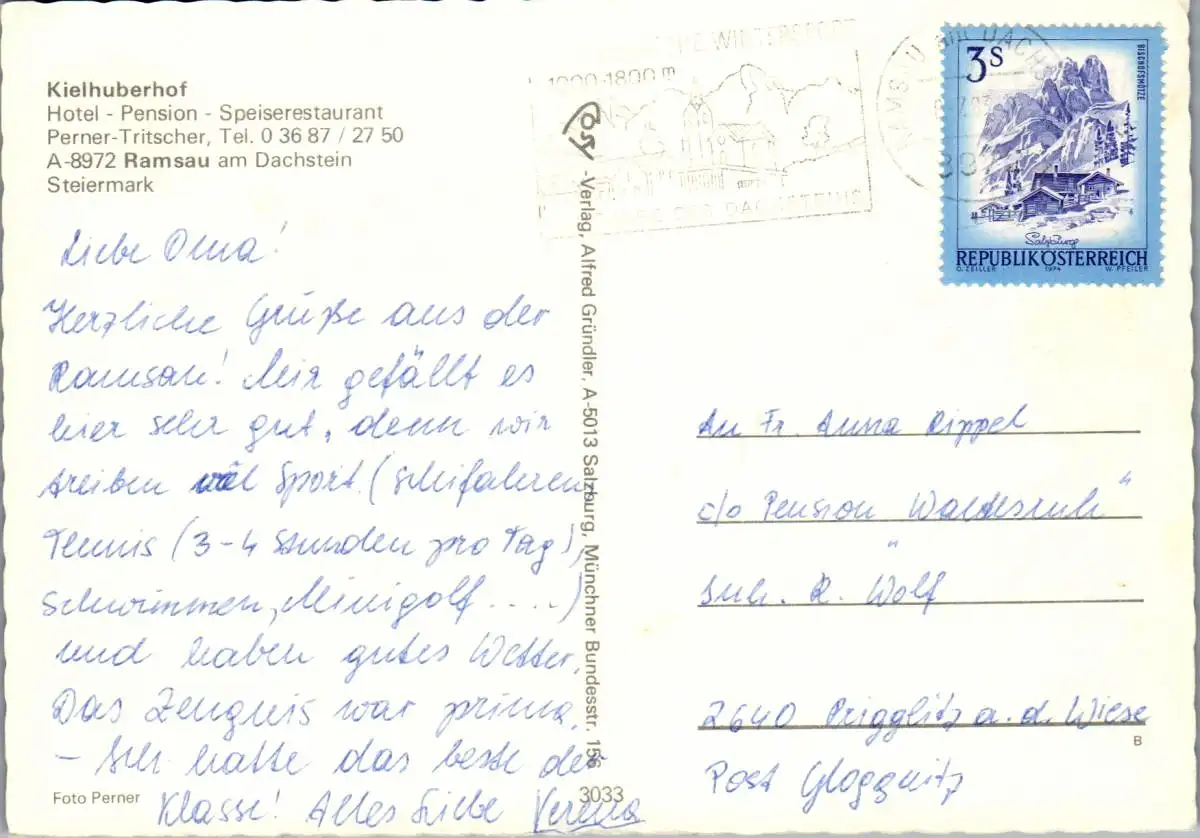 Kielhuberhof
Hotel - Pension - Speiserestaurant
Perner-Tritscher, Tel. 0 36 87 / 27 50
A-8972 Ramsau am Dachstein
Steiermark
Liebe Oma!
Herzliche Grüße aus der
Ramsau! Mir gefällt es
hier sehr gut, denn wir
treiben viel Sport (Schifahren
Tennis (3-4 Stunden pro Tag),
Schwimmen, Minigolf ....)
und haben gutes Wetter.
Das Zeugnis war prima,
- Ich hatte das beste der
Klasse! Alles Liebe Verena
Foto Perner
3033
ÖSV-Verlag, Alfred Gründler, A-5013 Salzburg, Münchner Bundesstr. 156
WINTERSPORT
1000-1800 m
DES DACHSTEINS
RAMSAU AM DACHS
3 S
BISCHOFSMÜTZE
Salzburg
REPUBLIK ÖSTERREICH
O. ZEILLER 1974 W. PFEILER
An Fr. Anna Rippel
c/o Pension "Waldesruh"
Inh. R. Wolf
2640 Prigglitz a. d. Wiese
B
Post Gloggnitz